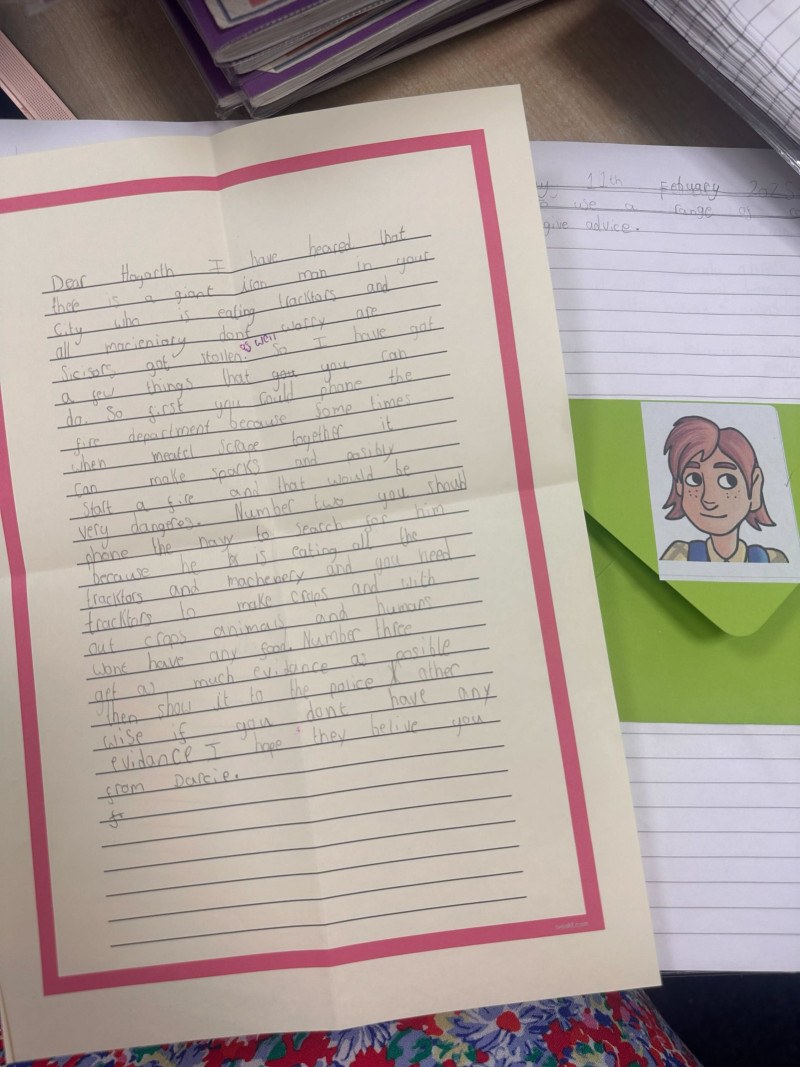 Dear Hogarth I have heared that
there is a giant iron man in your
City who is eating tracktors and
all macieniary dont worry are
Sicisors got stollen. as well So I have got
a few things that you can
do. So first you could phone the
fire department because some times
when meatel scrape together it
can make sparks and posibly
Start a fire and that would be
very dangeres. Number two you should
phone the navy to search for him
because he is eating all the
tracktors and machenery and you need
tracktors to make crops and with
out crops animals and humans
wont have any food. Number three
get as much evidance as posible
then show it to the police other
wise if you dont have any
evidance I hope they belive you
from Darcie.
11th Febuary
use a range of
give advice.